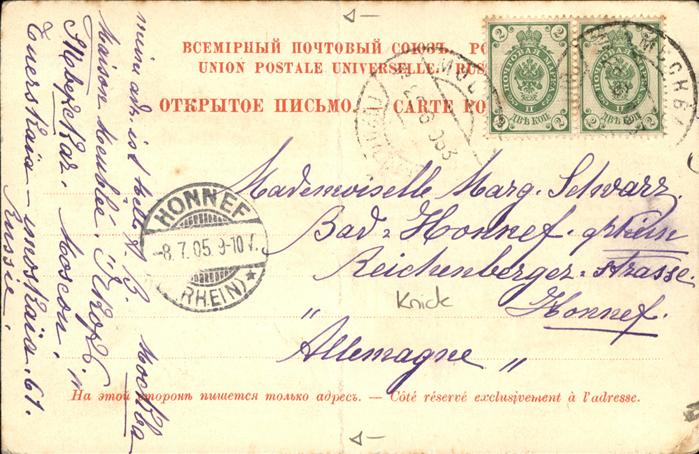 ВСЕМІРНЫЙ ПОЧТОВЫЙ СОЮЗЪ. РО
UNION POSTALE UNIVERSELLE. RUS
ОТКРЫТОЕ ПИСЬМО. CARTE PO
ПОЧТОВАЯ МАРКА
2 2
ДВѢ КОП.
ПОЧТОВАЯ МАРКА
2 2
ДВѢ КОП.
Mademoiselle Marg. Schwarz.
Bad-Honnef. a/Rhein
Reichenberger-strasse.
Knick
Honnef.
" Allemagne "
HONNEF
-8.7.05. 9-10 V.
(RHEIN)
На этой сторонѣ пишется только адресъ. — Côté réservé exclusivement à l'adresse.
mein adr. ist Москва
Maison Meublée.
Тверская. Moscou.
Twerskaia 61.
Russie.